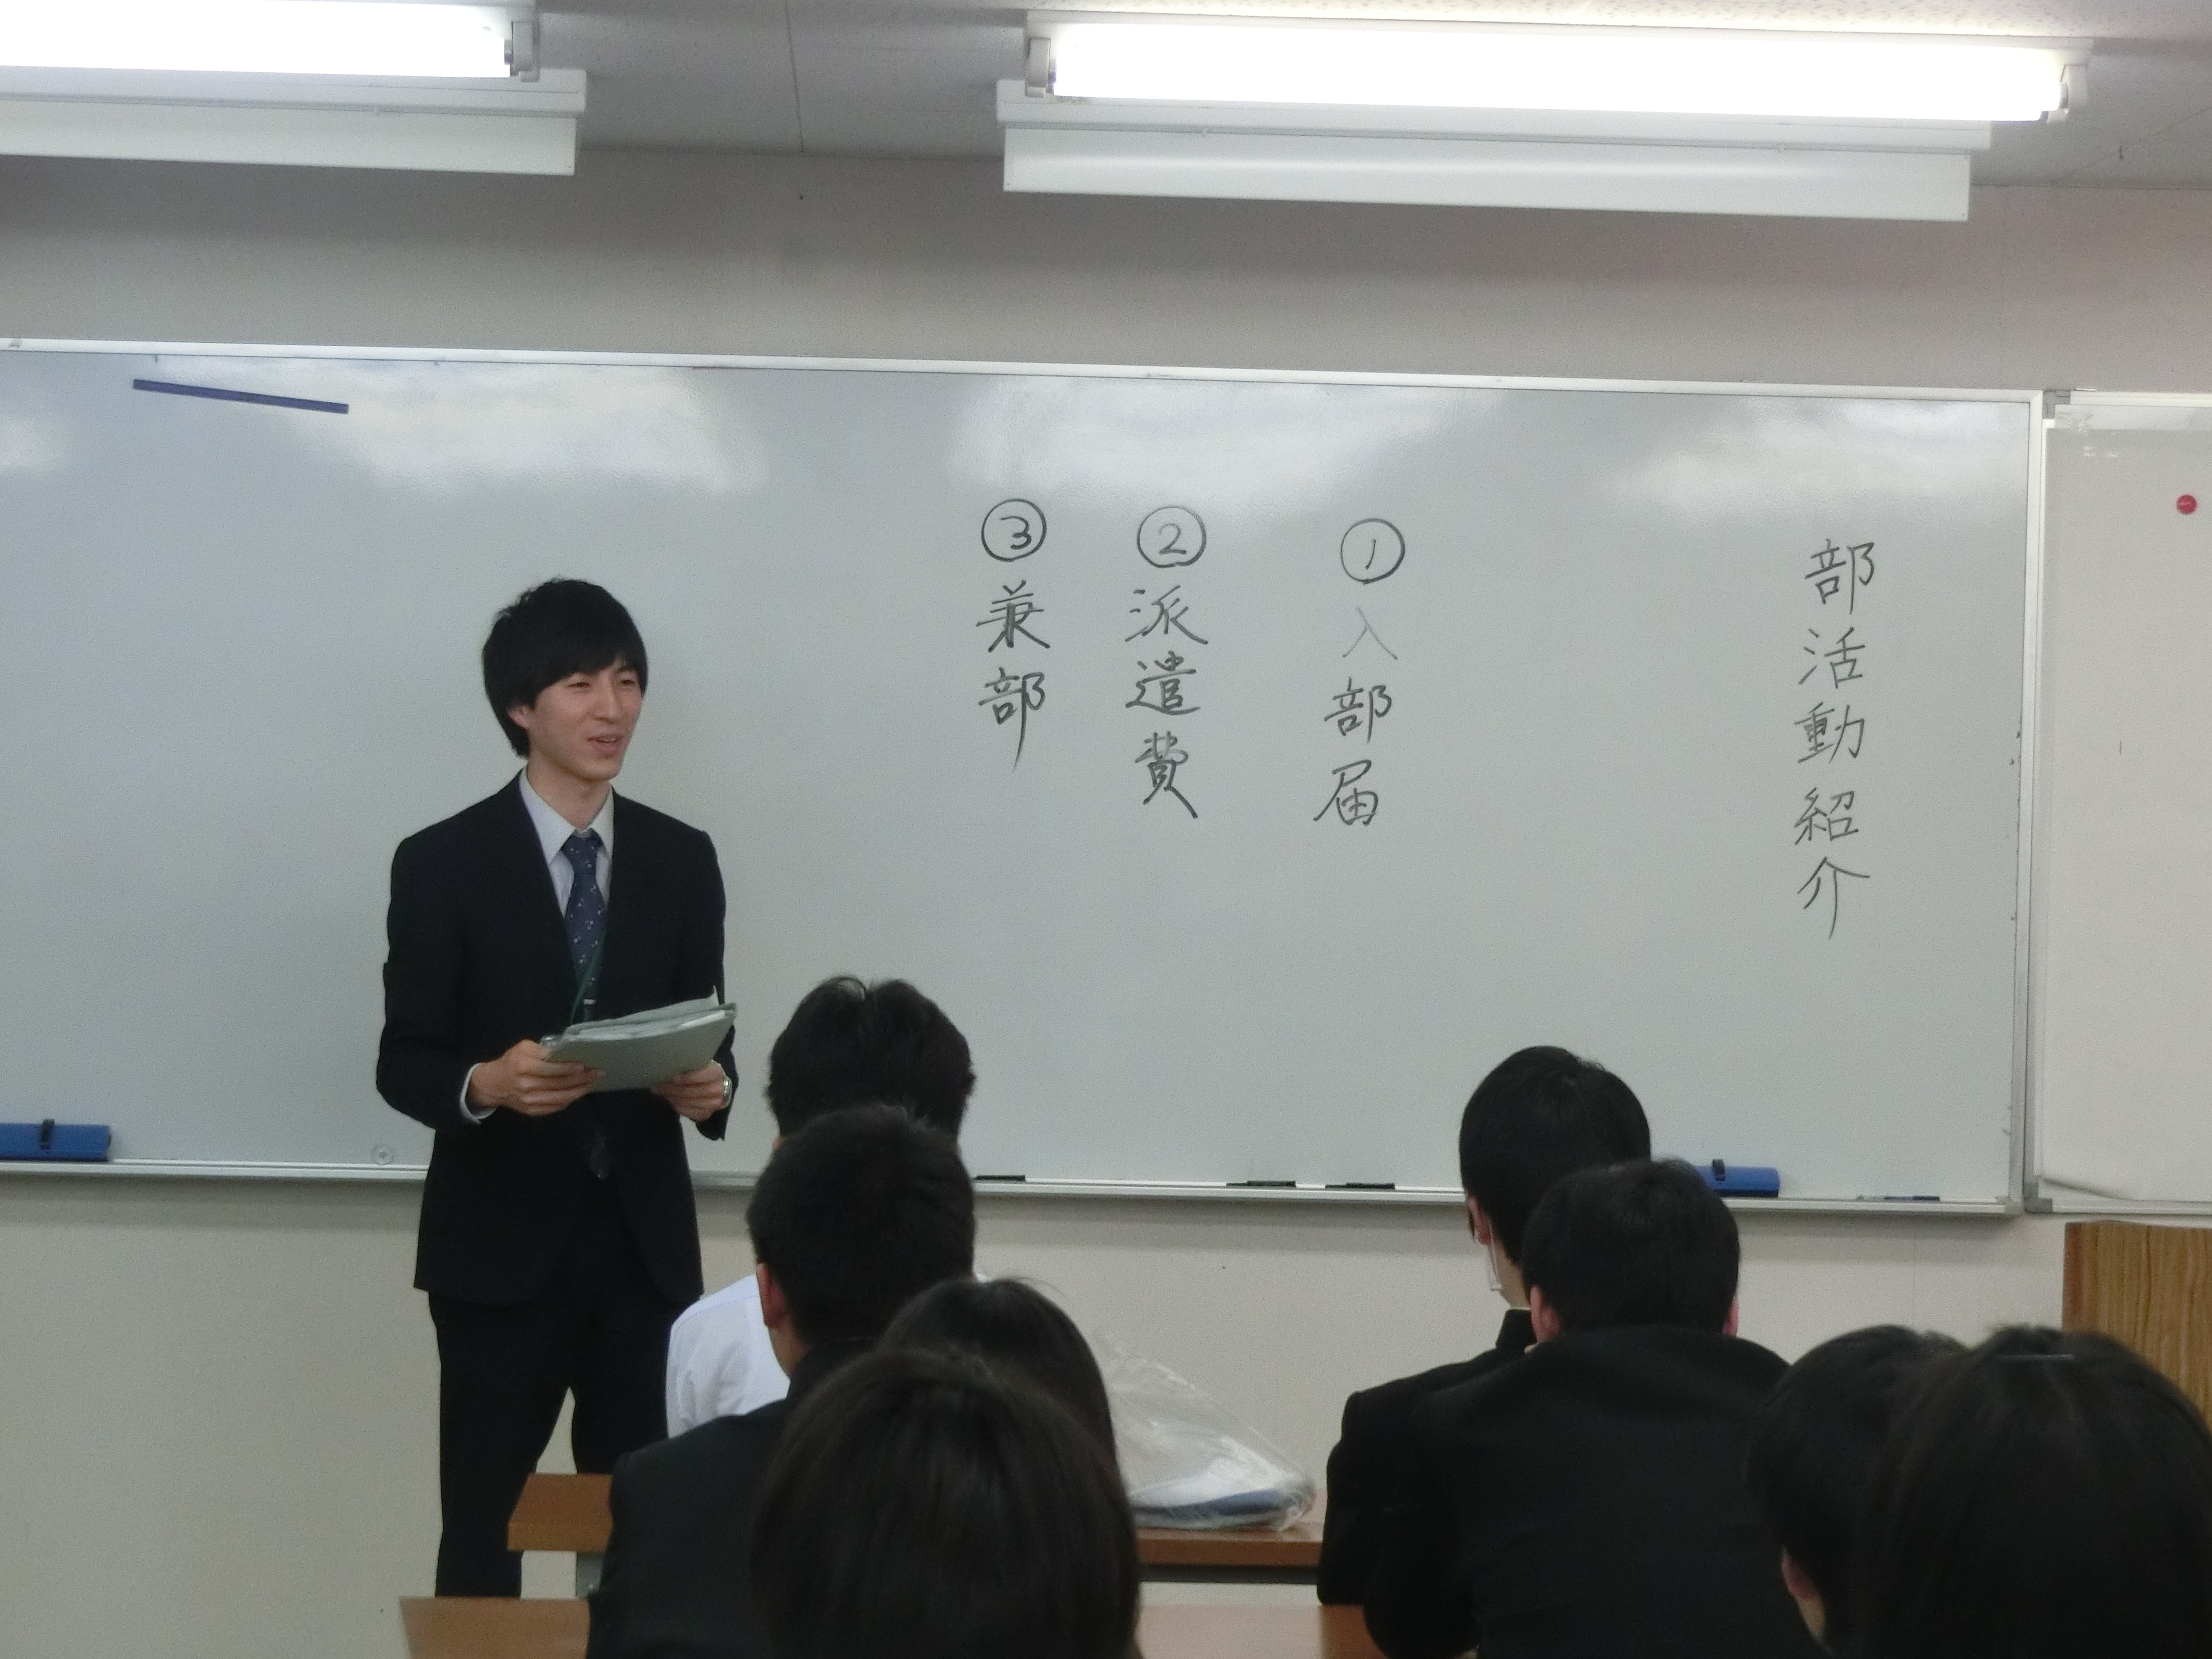 部活動紹介
①入部届
②派遣費
③兼部